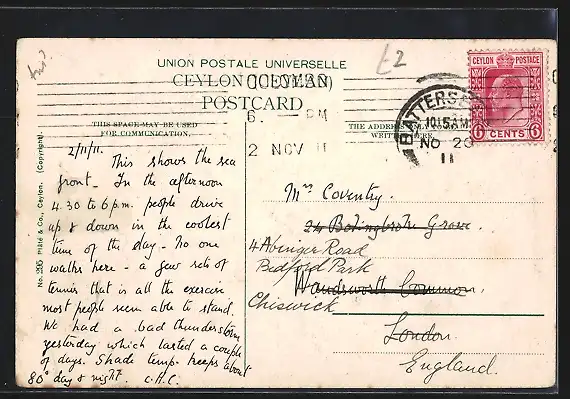 £2
UNION POSTALE UNIVERSELLE
CEYLON (CEYLAN)
POSTCARD
THIS SPACE MAY BE USED
FOR COMMUNICATION.
THE ADDRESS
COLOMBO
6. — PM
2 NOV 11
BATTERSEA
10.15AM
NO 20
11
CEYLON POSTAGE
6 CENTS 6
No. 295 Plâté & Co., Ceylon. (Copyright).
2/11/11.
This shows the sea
front. In the afternoon
4.30 to 6 p.m. people drive
up & down in the coolest
time of the day - No one
walks here - a few sets of
tennis that is all the exercise
most people seem able to stand.
We had a bad thunderstorm
yesterday which lasted a couple
of days. Shade temp. keeps about
80° day & night. C.H.C.
Mrs Coventry.
24 Bolingbroke Grove.
4 Abinger Road
Bedford Park
Wandsworth Common,
Chiswick
London.
England.